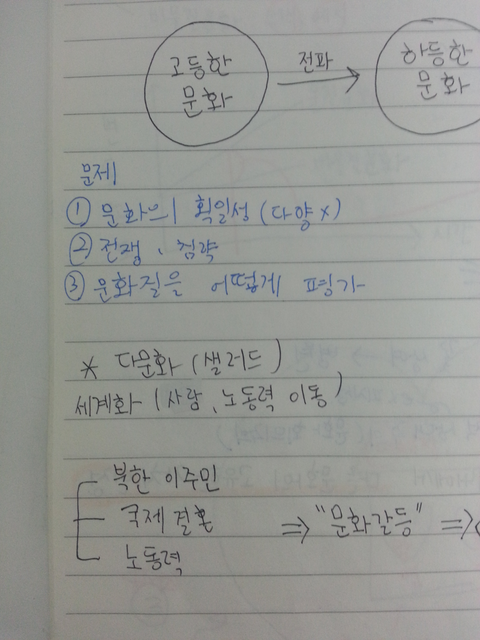 고등한 문화 전파 → 하등한 문화
문제
① 문화의 획일성 (다양x)
② 전쟁, 침략
③ 문화질을 어떻게 평가
* 다문화 (샐러드)
세계화 (사람, 노동력 이동)
북한 이주민
국제결혼
⇒ "문화갈등" ⇒
노동력